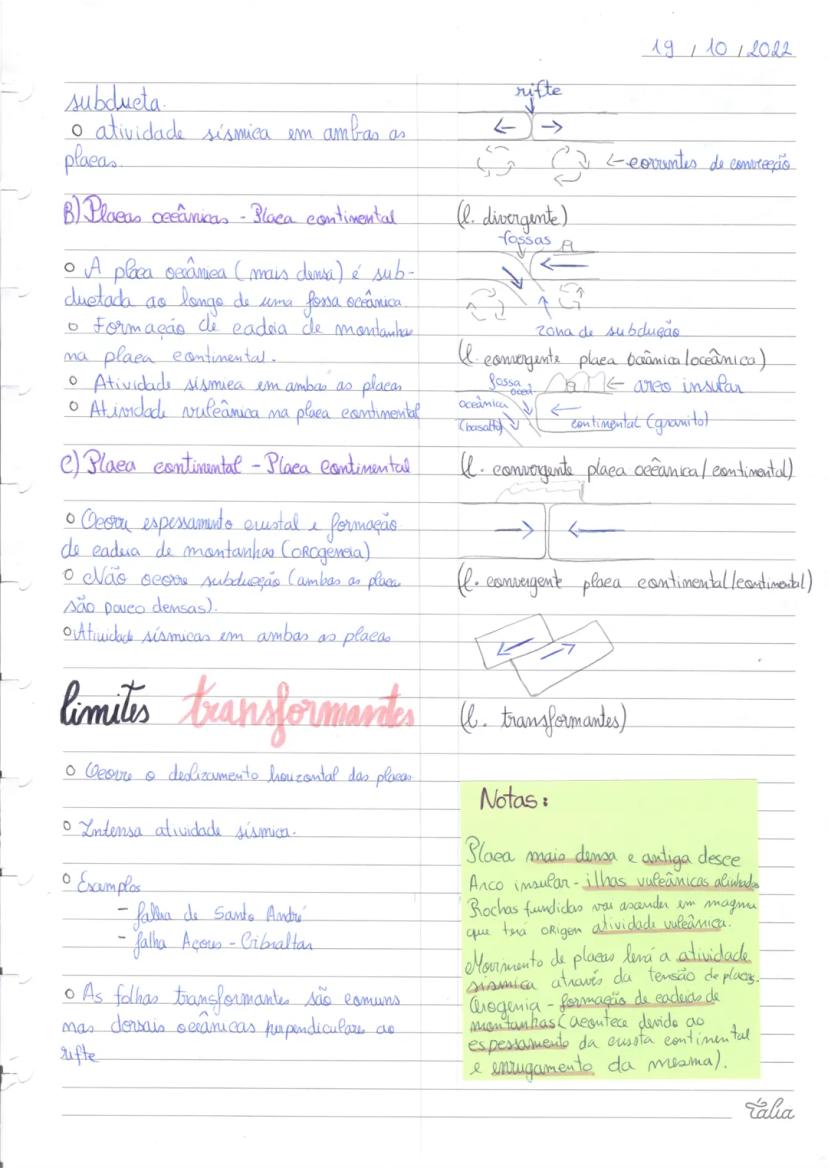 19 / 10 / 2022
subducta.
o atividade sísmica em ambas as
placas.
B) Placas oceânicas - Placa continental
o A placa oceânica (mais densa) é sub-
ductada ao longo de uma fossa oceânica.
o Formação de cadeia de montanhas
na placa continental.
o Atividade sísmica em ambas as placas
o Atividade vulcânica na placa continental
C) Placa continental - Placa Continental
o Ocorre espessamento crustal e formação
de cadeia de montanhas (OROgeneia)
o Não ocorre subducção (ambas as placas
são pouco densas).
o Atividade sísmicas em ambas as placas
limites transformantes
o Ocorre o deslizamento horizontal das placas
o Intensa atividade sísmica.
o Exemplos
- falha de Santo André
- falha Açores - Gibraltar
o As falhas transformantes são comuns
nas dorsais oceânicas perpendiculares ao
rifte
rifte
correntes de convecção
(l. divergente)
fossas
zona de subdução
(l. convergente placa oceânica/oceânica)
fossa
ocea.
arco insular
oceânica
(basalto)
continental (granito)
(l. convergente placa oceânica/continental)
(l. convergente placa continental/continental)
(l. transformantes)
Notas:
Placa mais densa e antiga desce
Arco insular - ilhas vulcânicas alinhadas
Rochas fundidas vai ascender em magma
que terá origem atividade vulcânica.
Movimento de placas levá a atividade
sísmica através da tensão de placas.
Orogenia - formação de cadeias de
montanhas (acontece devido ao
espessamento da crosta continental
e enrugamento da mesma).
Talia